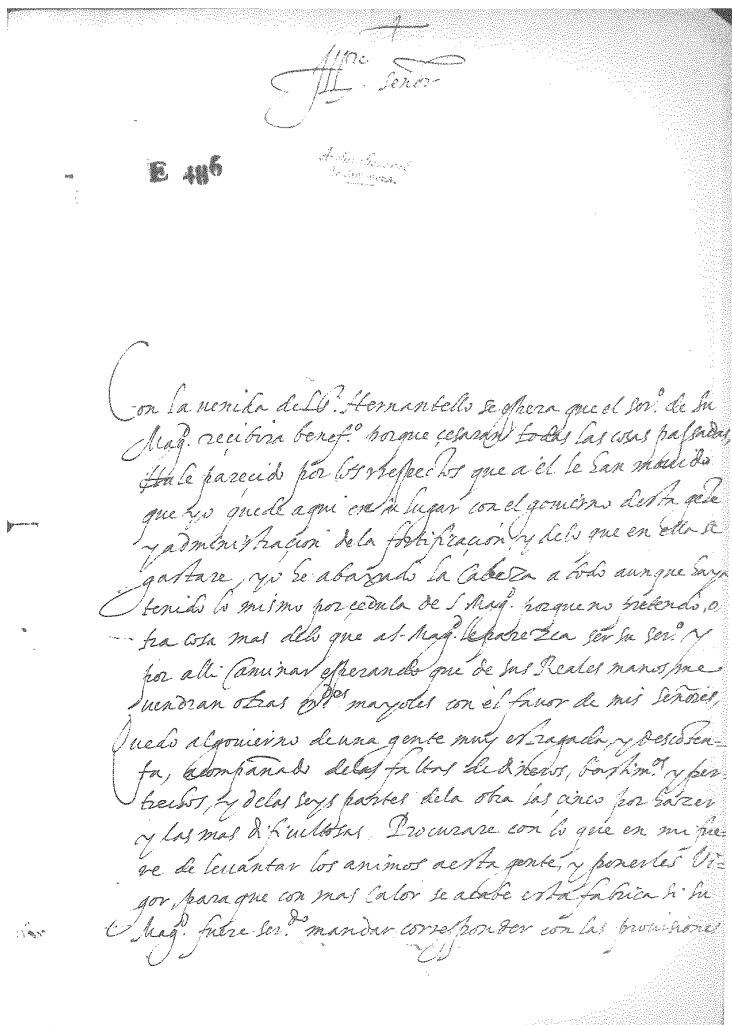 Ill.re
Señor
E 486
Archivo General
Con la uenida del S.r Hernantello se espera que el ser.o de su
Mag.d recibira benef.o porque cesaran todas las cosas passadas,
Hale parecido por los respectos que a el le han mouido
que yo quede aqui en su lugar con el gouierno desta gête
y administracion de la fortificacion, y delo que en ella se
gastare, yo he abaxado la Cabeza a todo aunque haya
tenido lo mismo por cedula de S Mag.d porque no pretendo, o
tra cosa mas delo que a S. Mag.d le parezca ser su ser.o y
por alli Caminar esperando que de sus Reales manos me
uendran otras m.des mayores con el fauor de mis Señores,
Quedo al gouierno de una gente muy estragada, y descôten-
ta, acompañado delas faltas de dineros, bastim.os y per
trechos, y delas seys partes dela obra las cinco por hazer
y las mas dificultosas. Procurare con lo que en mi fue-
re de leuantar los animos a esta gente, y ponerles Vi-
gor, para que con mas Calor se acabe esta fabrica si su
Mag.d fuere ser.do mandar corresponder con las prouisiones